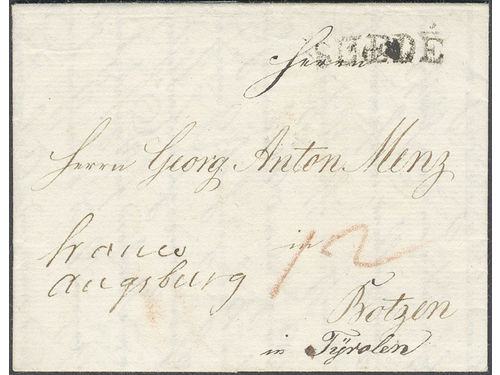 Herrn
Herrn Georg Anton Menz
franco
augsburg
in
12
Botzen
in Tÿrolen